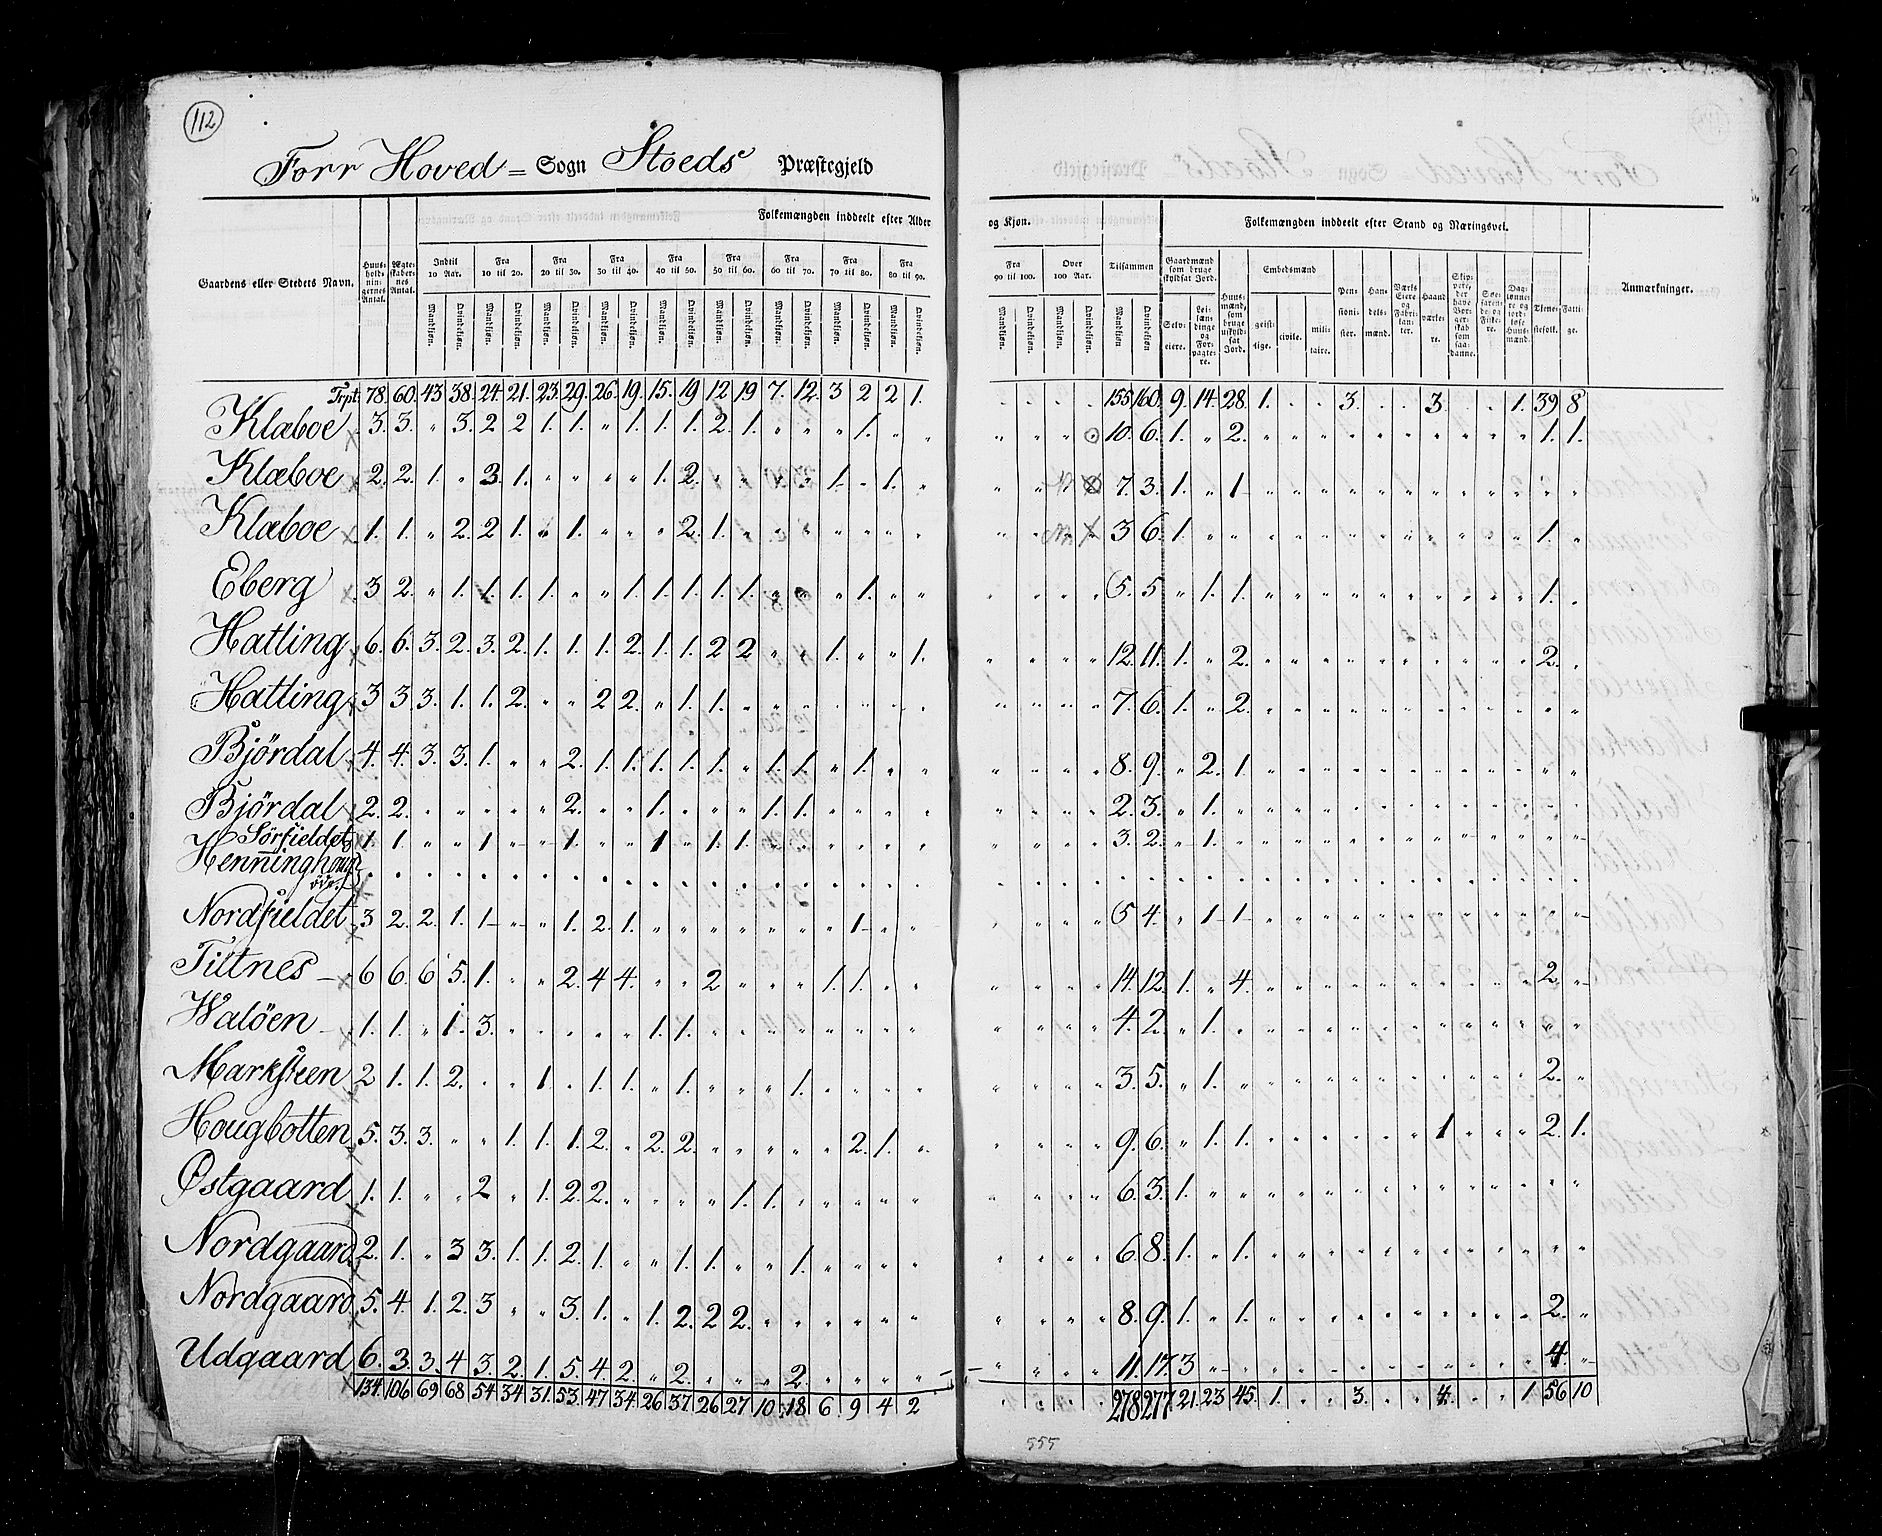 112
Forr Hoved = Sogn Stoeds Præstegjeld
Folkemængden inddeelt efter Alder og Kjøn. Folkemængden inddeelt efter Stand og Næringsvei.
Gaardens eller Stedets Navn. Huusholdningernes Antal. Ægteskabernes Antal. Indtil 10 Aar. Fra 10 til 20. Fra 20 til 30. Fra 30 til 40. Fra 40 til 50. Fra 50 til 60. Fra 60 til 70. Fra 70 til 80. Fra 80 til 90. Fra 90 til 100. Over 100 Aar. Tilsammen Gaardmænd som bruge skyldsat Jord. Huusmænd, som bruge uskyldsat Jord. Embedsmænd Pensionister. Handelsmænd. Værks Eiere og Fabrikanter. Haandværkere. Skippere, der have Borgerskab som saadanne. Søefarende og Fiskere. Daglønnere og jordløse Huusmænd. Tjenestefolk. Fattige. Anmærkninger.
Mandkjøn. Qvindekjøn. Mandkjøn. Qvindekjøn. Mandkjøn. Qvindekjøn. Mandkjøn. Qvindekjøn. Mandkjøn. Qvindekjøn. Mandkjøn. Qvindekjøn. Mandkjøn. Qvindekjøn. Mandkjøn. Qvindekjøn. Mandkjøn. Qvindekjøn. Mandkjøn. Qvindekjøn. Mandkjøn. Qvindekjøn. Mandkjøn. Qvindekjøn. Selveiere. Leilændinge og Forpagtere. geistlige. civile. militaire.
Trpt. 78. 60. 43 38. 24. 21. 23. 29. 26. 19. 15. 19 12 19 7. 12. 3 2 2 1. 155 160. 9. 14. 28. 1. 3. 3. 1. 39 8
Klæboe 3. 3. " 3. 2 2 1. 1. " 1. 1. 1. 2. 1. " " " 1. " " 10. 6. 1. " 2. 1. 1.
Klæboe 2. 2. 1. " 3. 1. " " " " 1. 2. " " " " 1. " 1. " 7. 3. 1. " 1
Klæboe 1. 1. " 2. 2 1. " 1. " " " 2. 1. 3 6. 1. 1.
Eberg 3 2. " 1. 1. 1. 1. " " 1. 1. 1. 1. 1. " " " 1. " " 5. 5 " 1. 1. 1.
Hatling 6. 6. 3. 2. 3. 2. 1. 1. 1. 2. 1. 1. 2 2 " " 1. " " 1. 12. 11. 1. " 2. 2.
Hatling 3 3 3. 1. 1. 2. " " 2 2. " 1. 1. 7. 6. 1. " 2.
Björdal 4. 4. 3 3. 1. " " 2. 1. 1. 1. 1. 1. " 1. 1. " 1. " " 8. 9. " 2. 1.
Björdal 2. 2. " " " " " 2. " " 1. " " " 1. 1. 2. 3. " 1.
Sörfieldet 1. 1. " " 1 - - 1. " " 1 " 1. 1. 3. 2. - 1.
Henninghoug öde.
Nordfieldet 3 2. 2. 1. 1 - " " 1. 2. 1. " " " " " " " 1 - " " 5 4. " 1 - 1 -
Tiltnes 6 6. 6 5. 1. " " 2. 4 4. " " 2 " " " 1. 1. " " 14. 12. 1. " 4. 2.
Waløen 1. 1. " 1. 3. " " " " " 1. 1. 4. 2. " 1.
Marksteen 2 1. 1. 2. " " 1. " 1. 1. " 1. " " " 1. 3. 5. " 1. 2.
Hougbotten 5. 3. 3. " " 1. 1. 1. 2. " 2. 2. " " " " " 2. 1. " 9. 6. " 1. 1. 1 2. 1.
Østgaard 1. 1. " " 2 " 1. 2 2. " " " " 1. 1. 6. 3. 1.
Nordgaard 2. 1. " 3 3. 1. 1. 2. 1. " " 1. 1. " " 1. 6. 8. 1. " 1.
Nordgaard 5. 4. 1. 2. 3 " " 3. 1. " 1. 2. 2 2. 8. 9. 1. " 1. 2.
Udgaard 6. 3. 3. 4 3. 2. 1. 5. 4. 2. " 2. " " " 2. 11. 17. 3 4.
134. 106 69. 68 54 34. 31. 53. 47 34. 26 37. 26 27 10. 18 6 9 4 2 278 277. 21. 23 45. 1. 3. 4. 1. 56 10
555